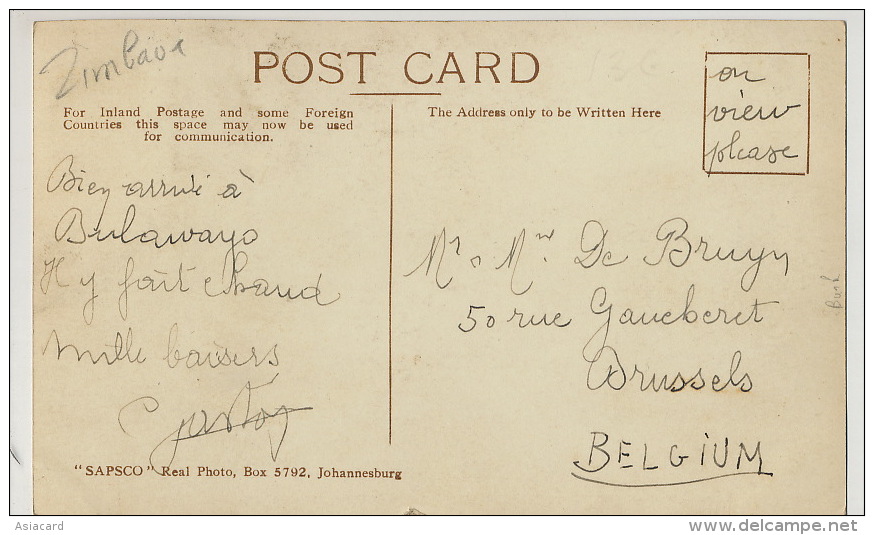 Zimbabwe
POST CARD
on
view
please
For Inland Postage and some Foreign
Countries this space may now be used
for communication.
The Address only to be Written Here
Bien arrivé à
Bulawayo
Il y fait chaud
mille baisers
Gaston
Mr & Mme De Bruyn
50 rue Gaucheret
Brussels
BELGIUM
"SAPSCO" Real Photo, Box 5792, Johannesburg
Asiacard
www.delcampe.net